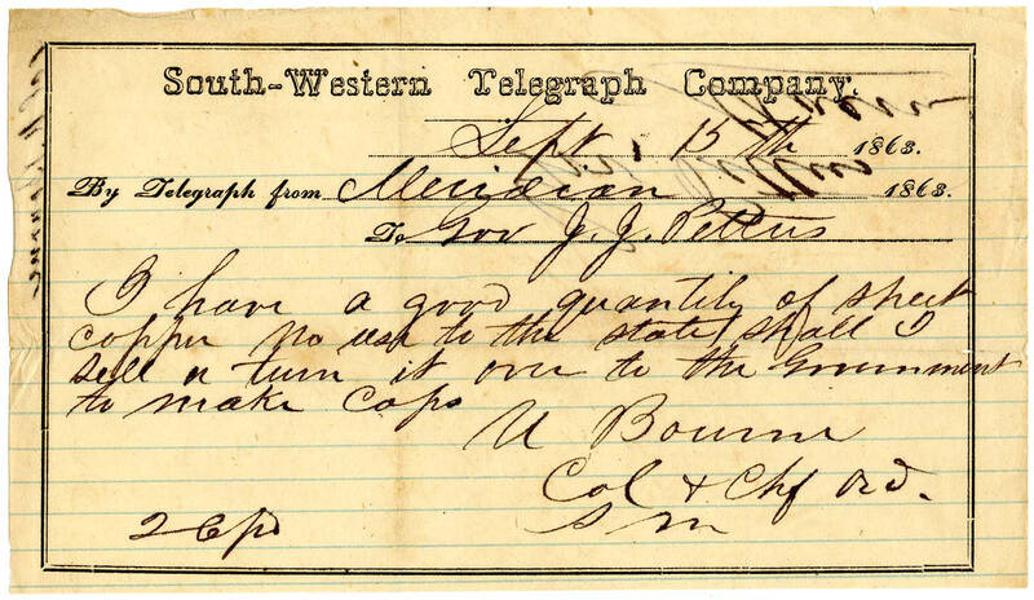 South-Western Telegraph Company.
Sept. 15th 1863.
By Telegraph from Meridian 1863.
To Gov J. J. Pettus
I have a good quantity of sheet
copper no use to the state shall I
sell or turn it over to the Government
to make Caps
U Bourne
Col & Chf Ord.
S M